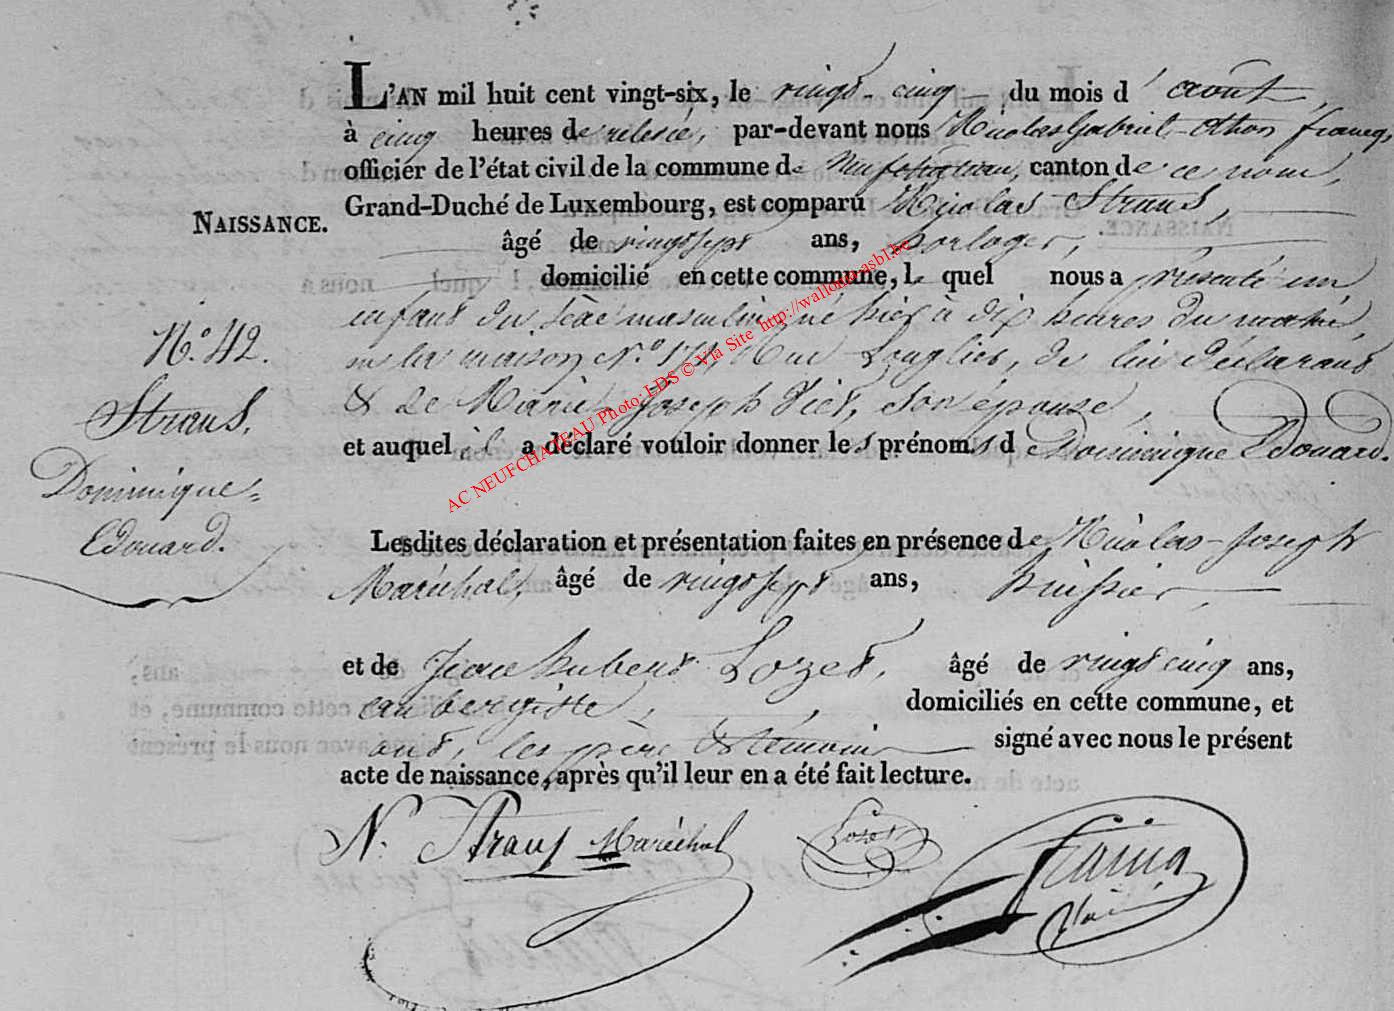 L'AN mil huit cent vingt-six, le vingt-cinq du mois d'août,
à cinq heures de relevée, par-devant nous Nicolas Gabriel-Othon Francq,
officier de l'état civil de la commune de Neufchâteau, canton de ce nom,
Grand-Duché de Luxembourg, est comparu Nicolas Straus,
NAISSANCE.
âgé de vingt sept ans, horloger,
domicilié en cette commune, le quel nous a présenté un
enfant du sexe masculin, né hier à dix heures du matin,
N.o 42.
en la maison N.o 171, Rue Longlier, de lui déclarant
Straus,
& de Marie-Joseph son épouse,
et auquel il a déclaré vouloir donner les prénoms de Dominique Edouard.
Dominique-
Edouard.
Lesdites déclaration et présentation faites en présence de Nicolas-Joseph
Maréchal, âgé de vingt sept ans, huissier,
et de Jean hubert Lozet, âgé de vingt cinq ans,
aubergiste, domiciliés en cette commune, et
ont, les père & témoins signé avec nous le présent
acte de naissance, après qu'il leur en a été fait lecture.
N. Straus Maréchal Lozet
AC NEUFCHATEAU Photo: LDS © Via Site http://wallonia-asbl.be